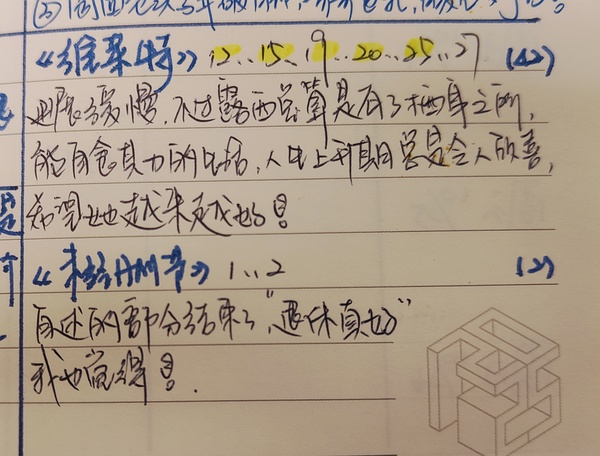 《维莱特》 12..15..19..20..25..27 (42)
进展缓慢，不过露西总算是有了栖身之所，
能自食其力的生活，人生上升期总是令人欣喜，
希望她越来越好！
1..2 (2)
自述的部分结束了，“退休真好”
我也觉得！